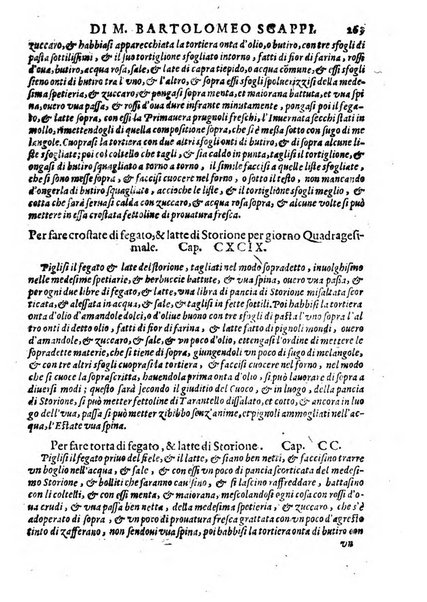 DI M. BARTOLOMEO SCAPPI. 263
zuccaro, & habbiasi apparecchiata la tortiera onta d'olio, o butiro, con tre sfogli di
pasta sottilissimi, & il suo tortiglione sfogliato intorno, fatti di fior di farina, rossi
d'oua, butiro, acqua rosa, sale, & late di capra tiepido, o acqua cõmune, & essi sfogli
stiano onti di butiro tra l'uno, & l'altro, & dapoi spoluerizzisi lo sfoglio della mede
sima spetieria, & zuccaro, & pongasi sopra menta, et maiorana battuta, et vn poco di
butiro, ouero vua passa, & rossi d'oua dure infrante minutamente, poi pongasi il fega
to, & latte sopra, con essi la Primauera prugnoli freschi, l'Inuernata secchi stati in
mollo, rimettendogli di quella compositione sopra, che stato sotto con sugo di me
langole. Cuoprasi la tortiera con due altri sfogli onti di butiro, & alcune liste
sfogliate; poi col coltello che tagli, & sia caldo in punta, tagli il tortiglione, &
empiasi di butiro squagliato a torno a torno, il simile faccisi a quelle liste sfogliate,
che stanno sopra, & faccisi cuocere nel forno, o sotto il testo, non mancando
d'ongerla di butiro squagliato, accioche le liste, & il tortiglione sfogli meglio, &
cotta che sarà seruasi calda con zuccaro, & acqua rosa sopra, & alcune volte si può
mettere in essa crostata fettoline di prouatura fresca.
Per fare crostate di fegato, & latte di Storione per giorno Quadragesi-
male. Cap. CXCIX.
Piglisi il fegato & late del storione, tagliati nel modo sopradetto, inuolghisino
nelle medesime spetiarie, & herbuccie battute, & vua spina, ouero vua passa, &
per ogni due libre di fegato, & latte, vna libra di pancia di Storione misalata scor
ticata, & alessata in acqua, & tagliata in fette sottili. Poi habbisi la tortiera onta
d'olio d'amandole dolci, o d'oliue nuouo con tre sfogli di pasta, & l'orlo a torno a tor
no onti di detto olio, fatti di fior di farina, & latte fatto di pignoli mondi, ouero
d'amandole, & zuccaro, & sale, & vn poco di vin bianco, & habbiansi a mettere le
sopradette materie, che si tiene di sopra, giungendoli vn poco di sugo di melangole,
& con tre altri sfogli cuoprasi la tortiera, & faccisi cuocere nel forno, o sotto il testo,
come si cuoce la soprascritta, hauendola prima onta d'olio, si può lauorare di sopra a
diuersi modi; Questo sarà secondo il giuditio del Cuoco, & in luogo, della pancia
di storione, si può metter fettoline di Tarantello dissalato, et cotto, & ancho in luo
go dell'vua passa si può metter zibibbo senz'anime, et pignoli ammogliati nell'ac-
qua, l'Estate vua spina.
Per fare torta di fegato, & latte di Storione. Cap. CC.
Piglisi il fegato priuo del fiele, & il latte, & siano ben netti, & faccisino trarre
vn boglio nell'acqua, & sale, & con essi vn poco di pancia scorticata del medesi-
mo Storione, & bolliti che saranno cauinsi, & si lascino raffreddare, battansi
con li coltelli, & con essi menta, & maiorana, mescolandosi ogni cosa con rossi
d'oua crudi, & vua passa, o vua spina, della medesima spetieria, & zuccaro, che s'è
adoperato di sopra, & vn poco di prouatura fresca grattata con vn poco d'agresto
tinto di zafferano, non sendoui vua spina, poi habbisi la tortiera onta di butiro con
vn